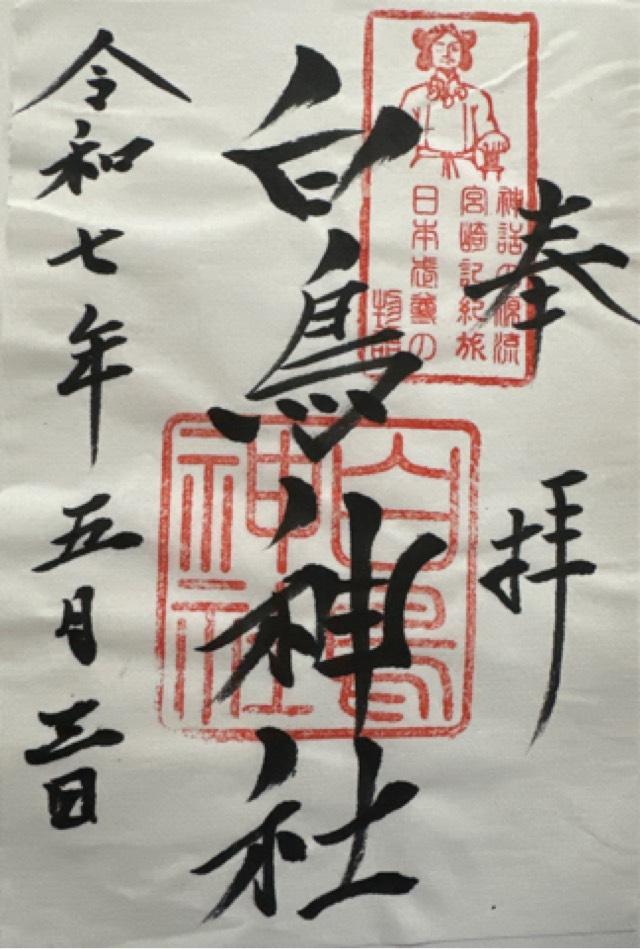 奉拝
神話の源流
宮崎記紀旅
日本武尊の
物語
白鳥神社
白鳥
神社
令和七年五月三日